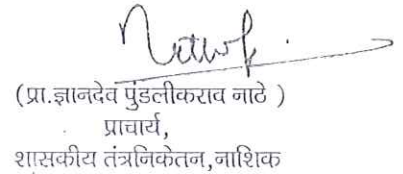 (प्रा.ज्ञानदेव पुंडलीकराव नाठे )
प्राचार्य,
शासकीय तंत्रनिकेतन,नाशिक